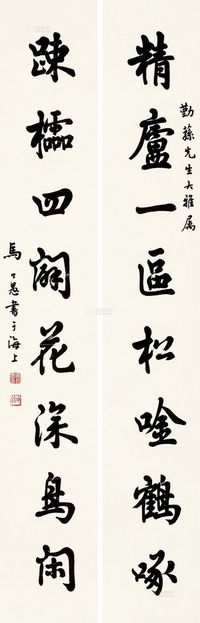 勤蓀先生大雅属
精廬一區松唫鶴啄
疎櫺四闢花深鳥閑
馬公愚書于海上